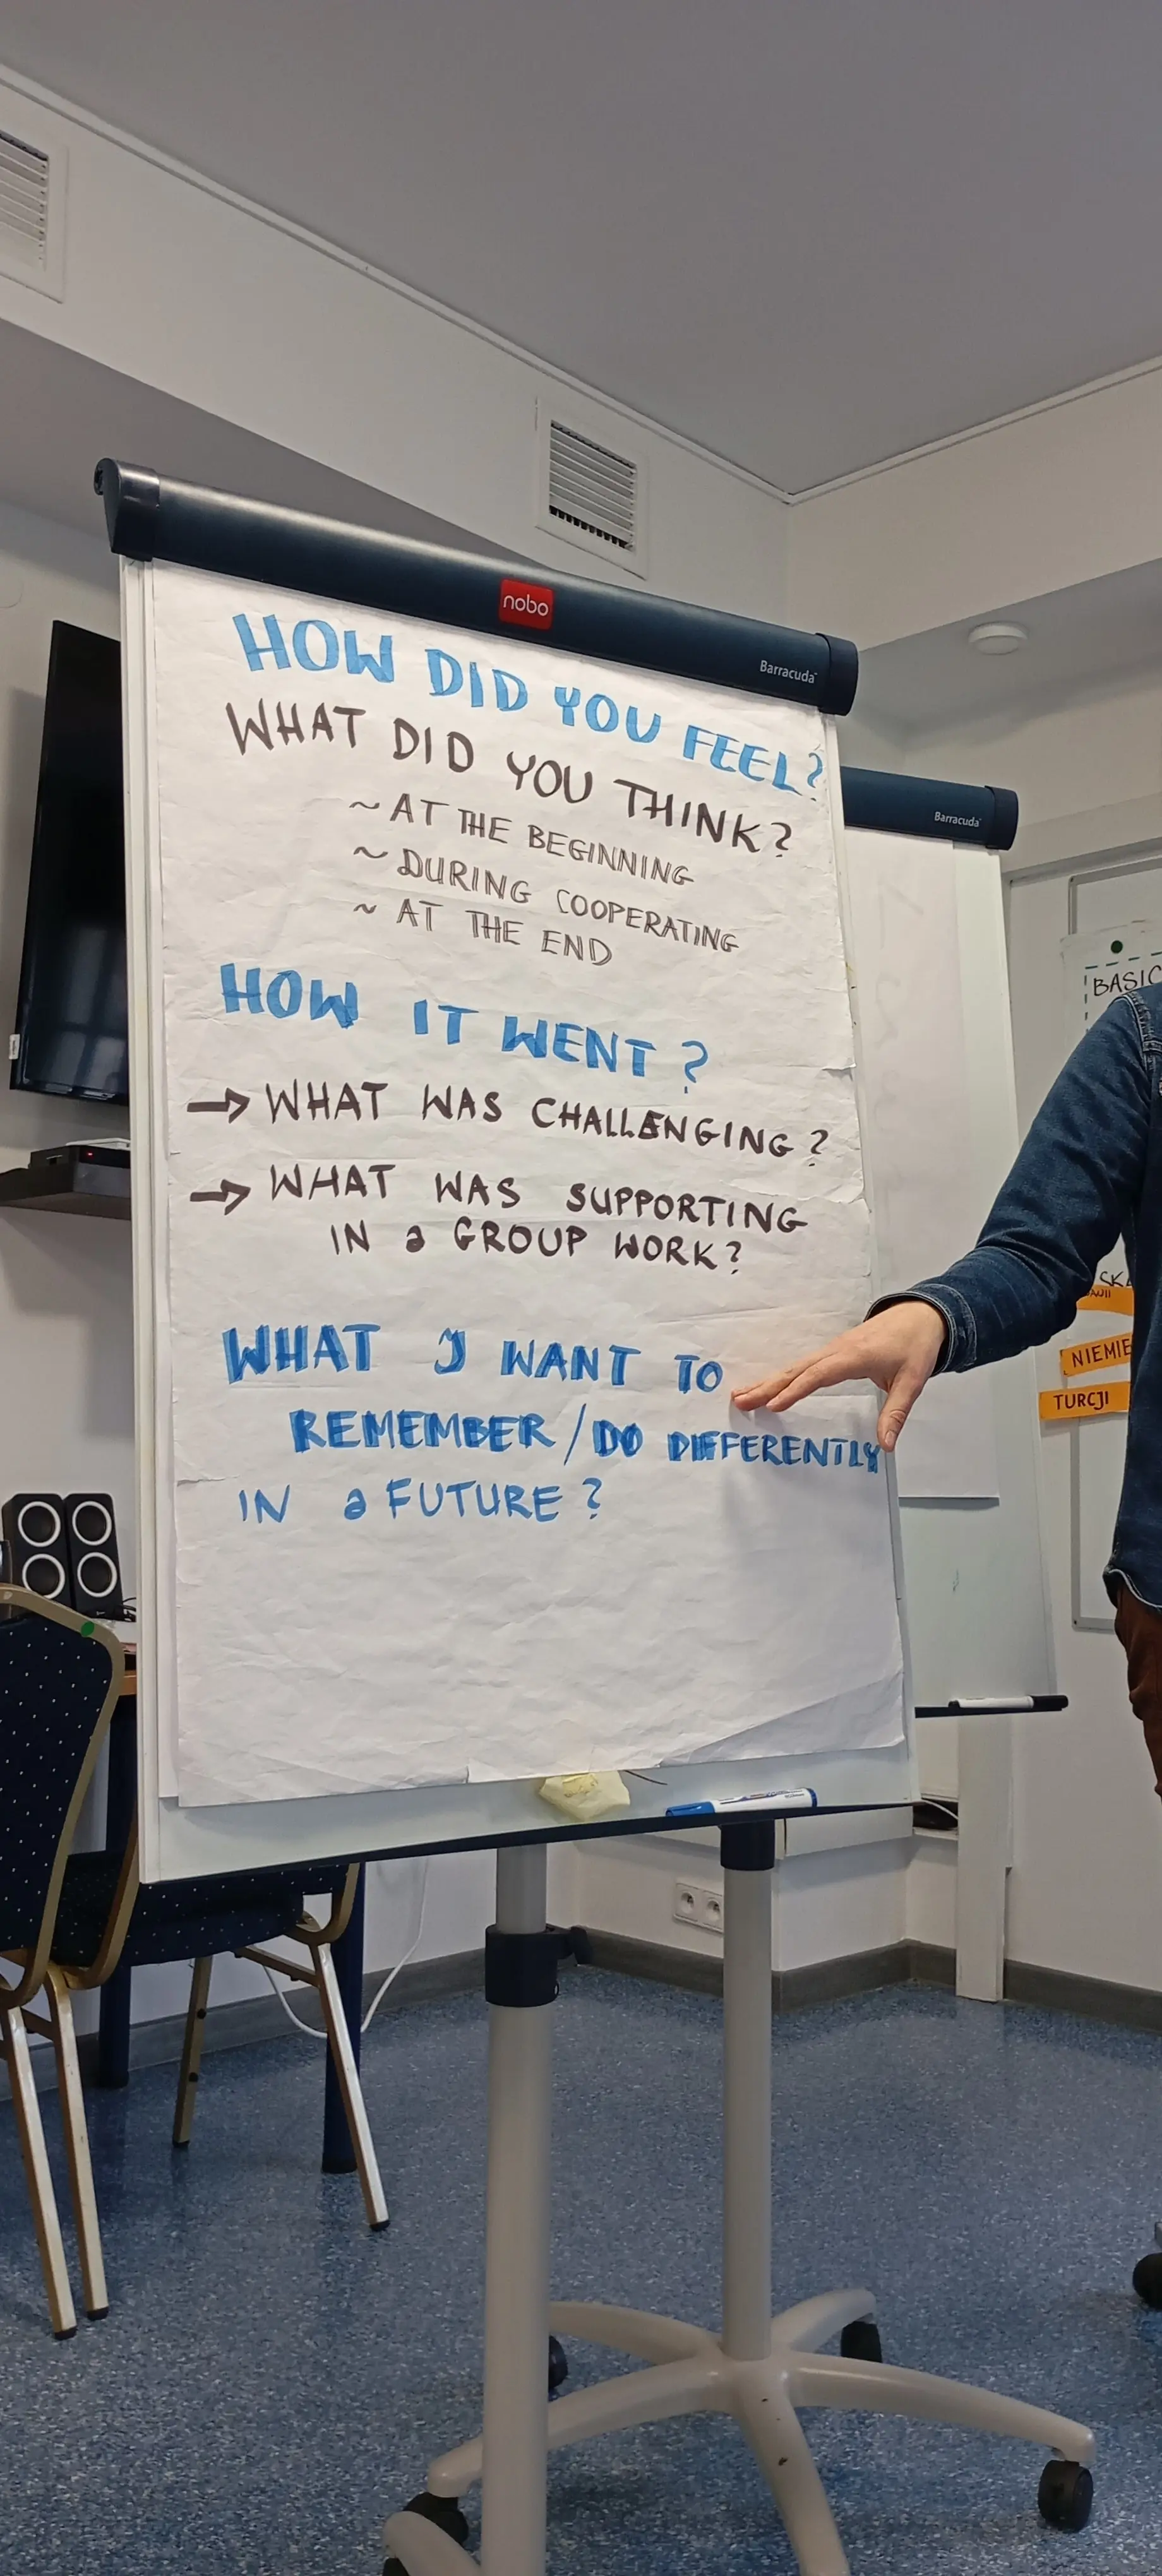 nobo
Barracuda
HOW DID YOU FEEL?
WHAT DID YOU THINK?
~ AT THE BEGINNING
~ DURING COOPERATING
~ AT THE END
HOW IT WENT?
→ WHAT WAS CHALLENGING?
→ WHAT WAS SUPPORTING
IN a GROUP WORK?
WHAT I WANT TO
REMEMBER/DO DIFFERENTLY
IN a FUTURE?
Barracuda
BASIC
NIEMIE
TURCJI